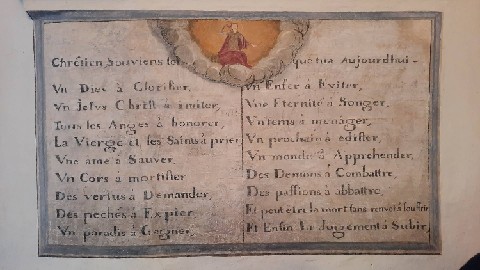 Chrétien Souviens toi que tu a Aujourd'hui
Vn Dieu à Glorifier,
Vn Jesus Christ à imiter,
Tous les Anges à honorer,
La Vierge et les Saints à prier,
Vne ame à Sauver,
Vn Cors à mortifier
Des vertus à Demander,
Des pechés à Expier
Vn paradis à Gagner,
Vn Enfer à Eviter,
Vne Eternité à Songer,
Vn tems à menager,
Vn prochain à edifier,
Vn monde à Apprehender,
Des Demons à Combattre,
Des passions à abbattre,
Et peut être la mort sans à Souffrir
Et Enfin Le Jugement à Subir,